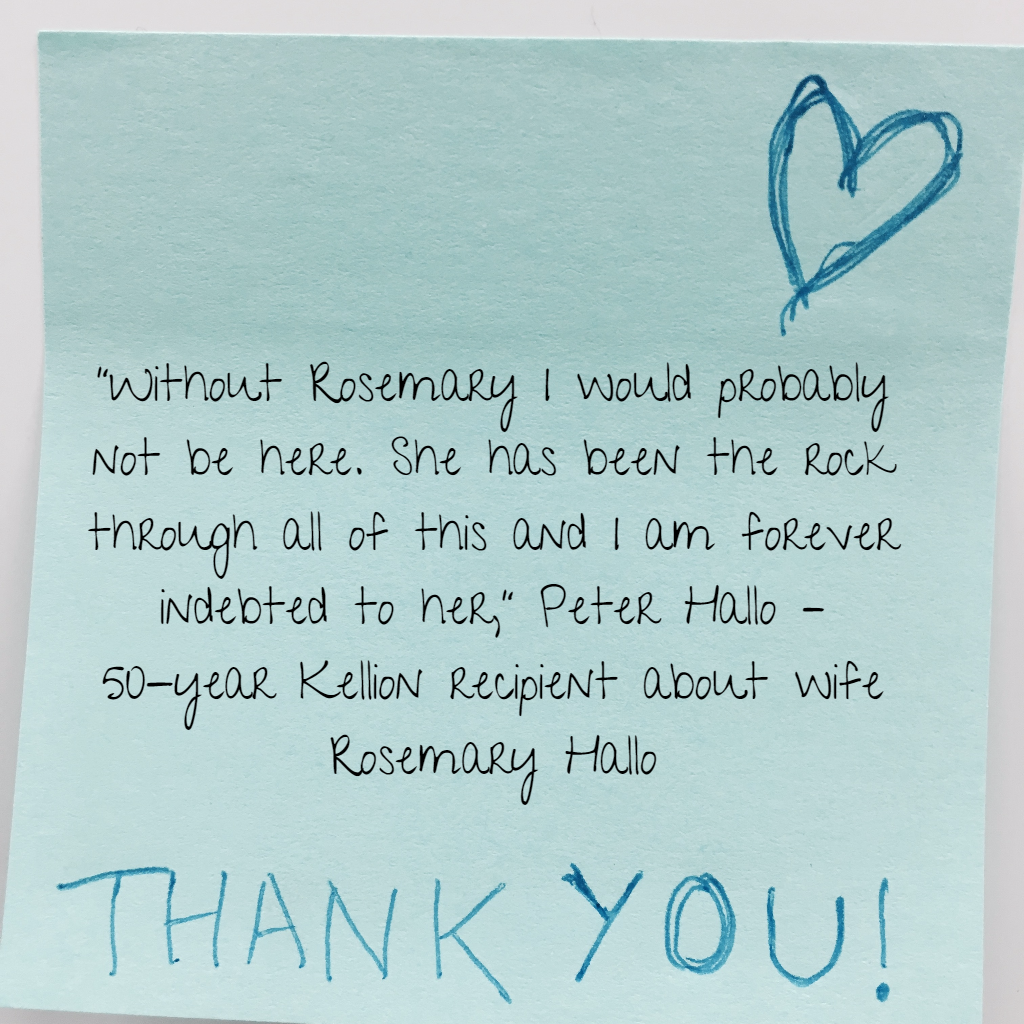 "Without Rosemary I would probably
not be here. She has been the rock
through all of this and I am forever
indebted to her," Peter Hallo -
50-year Kellion recipient about wife
Rosemary Hallo
THANK YOU!